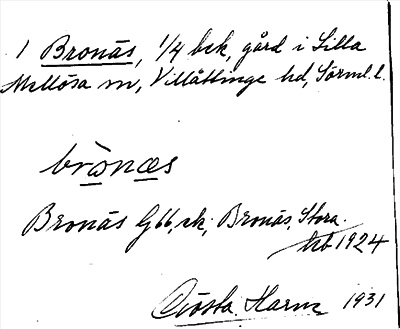 1 Bronäs, 1/4 bck, gård i Lilla
Mellösa sn, Villåttinge hd, Sörml. l.
brònæs
Bronäs G66, sk; Bronäs, Stora.
1924
Gösta Harm 1931